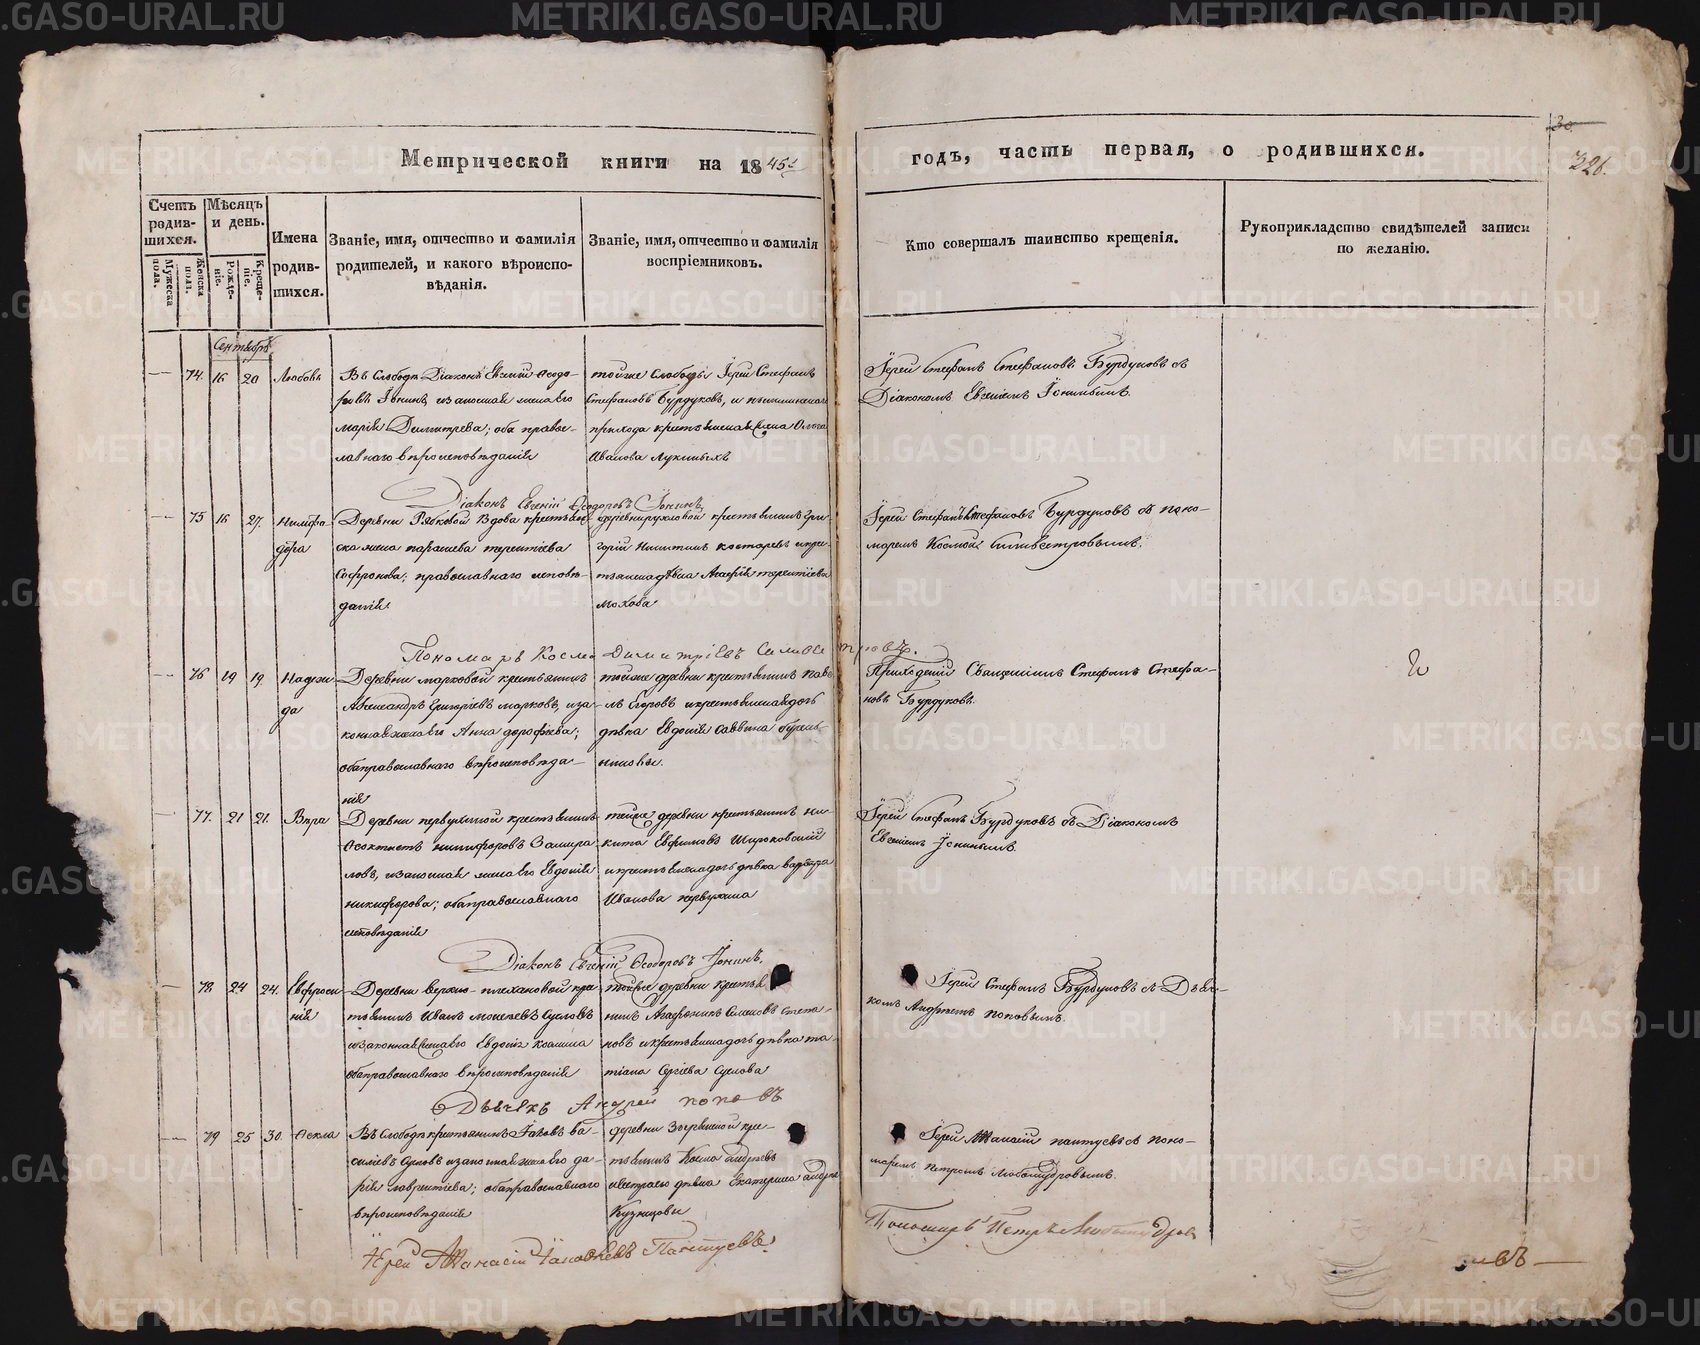 METRIKI.GASO-URAL.RU
Метрической книги на 1845й
годъ, часть первая, о родившихся.
30.
326.
Счетъ родив-
шихся.
Мѣсяцъ
и день.
Имена
родив-
шихся.
Мужеска пола.
Женска пола.
Рожде-
ніе.
Креще-
ніе.
Званіе, имя, отчество и фамилія
родителей, и какого вѣроиспо-
вѣданія.
Званіе, имя, отчество и фамилія
воспріемниковъ.
Кто совершалъ таинство крещенія.
Рукоприкладство свидѣтелей записи
по желанію.
Сентябрь
74. 16 20 Любовь
Въ Слободѣ Діаконъ Евгеній Ѳеодо-
ровъ Іонинъ, и законная жена его
Марія Димитрева; оба правос-
лавнаго вѣроисповѣданія
тойже Слободы Іерей Стефанъ
Стефановъ Бурдуковъ, и
прихода крестьянская жена Ольга
Иванова Лукиныхъ
Іерей Стефанъ Стефановъ Бурдуковъ съ
Діакономъ Евгеніемъ Іонинымъ.
Діаконъ Евгеній Ѳеодоровъ Іонинъ
75 16 27. Нимфо-
дора
Деревни Рябковой Вдова крестьян-
ская жена Парасковья терентіева
Софронова; православнаго исповѣ-
данія
крестьянинъ Гри-
горій Никитинъ костаревъ и кре-
стьянская дѣвка Агафія терентіева
Мохова
Іерей Стефанъ Стефановъ Бурдуковъ съ поно-
маремъ Космою Сильвестровымъ.
Пономарь Косма Димитріевъ Сильвестровъ.
76 19 19 Надеж-
да
Деревни марковой крестьянинъ
Александръ Григоріевъ марковъ, и за-
конная жена его Анна дорофѣева;
оба православнаго вѣроисповѣда-
нія
тойже деревни крестьянинъ Паве-
лъ Егоровъ и крестьянская дочь
дѣвка Евдокія Саввина
Приходскій Священникъ Стефанъ Стефа-
новъ Бурдуковъ.
77. 21 21. Вѣра
Деревни первухиной крестьянинъ
Ѳеоктистъ никифоровъ Замира-
ловъ, и законная жена его Евдокія
никифорова; оба православнаго
исповѣданія
тойже деревни крестьянинъ ни-
кита Ефимовъ Широковскій
и крестьянская дочь дѣвка варвара
Иванова первухина
Іерей Стефанъ Бурдуковъ съ Діакономъ
Евгеніемъ Іонинымъ.
Діаконъ Евгеній Ѳеодоровъ Іонинъ.
78. 24 24. Евфроси-
нія
Деревни верхно-плехановой кре-
стьянинъ Иванъ Моисеевъ Сусловъ
и законная жена его Евдокія козмина
оба православнаго вѣроисповѣданія
тойже деревни крестья-
нинъ Агафоникъ Симеовъ Степа-
новъ и крестьянская дочь дѣвка та-
тіана Сергіева Суслова
Іерей Стефанъ Бурдуковъ съ Дьяч-
комъ Андреемъ поповымъ.
Дьячекъ Андрей поповъ
79 25 30. Ѳекла
Въ Слободѣ крестьянинъ Іаковъ ва-
силіевъ Сусловъ и законная жена его да-
рія лаврентіева; оба православнаго
вѣроисповѣданія
деревни кре-
стьянинъ Косма андреевъ
и сестра его дѣвка Екатерина андреева
Кузнецовы
Іерей Аѳанасій пантуевъ съ поно-
маремъ петромъ Любомудровымъ.
Пономарь Петръ Любомудров
Іерей Аѳанасій Іаковлевъ Пантуевъ.